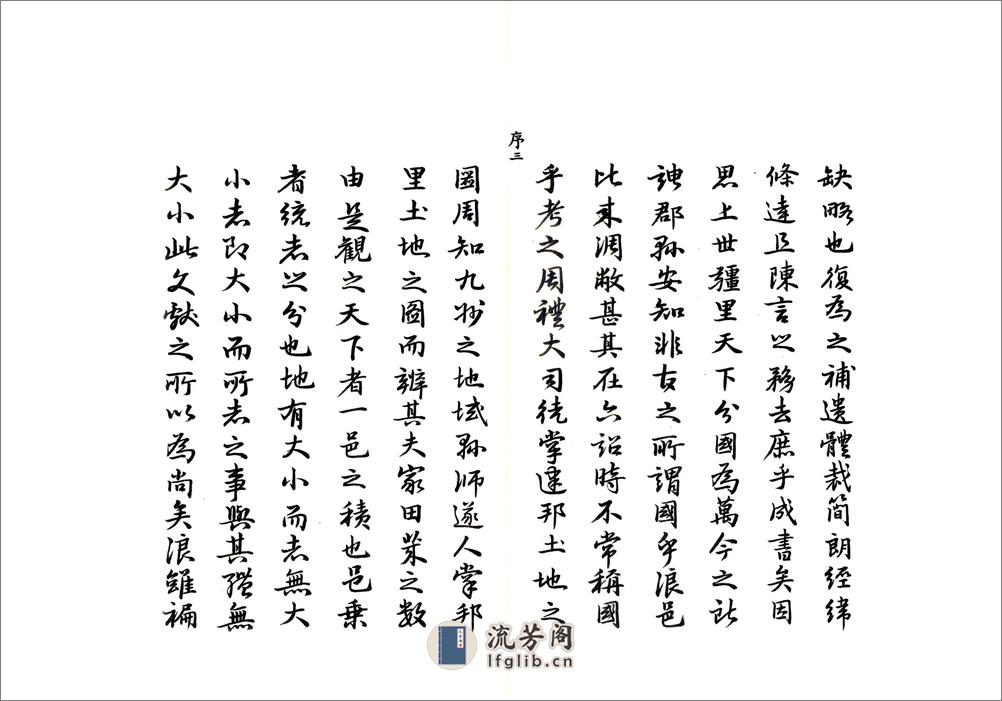 缺略也復為之補遺體裁簡朗經緯
條達且陳言之務去庶乎成書矣因
思上世疆里天下分國為萬今之所
謂郡縣安知非古之所謂國乎浪邑
比来凋敝甚其在六詔時不常稱國
乎考之周禮大司徒掌建邦土地之
序三
圖周知九州之地域縣師遂人掌邦
里土地之圖而辨其夫家田萊之数
由是觀之天下者一邑之積也邑乗
者統志之分也地有大小而志無大
小志即大小而所志之事與其殫無
大小此文獻之所以為尚矣浪雖褊
流芳阁
lfglib.cn